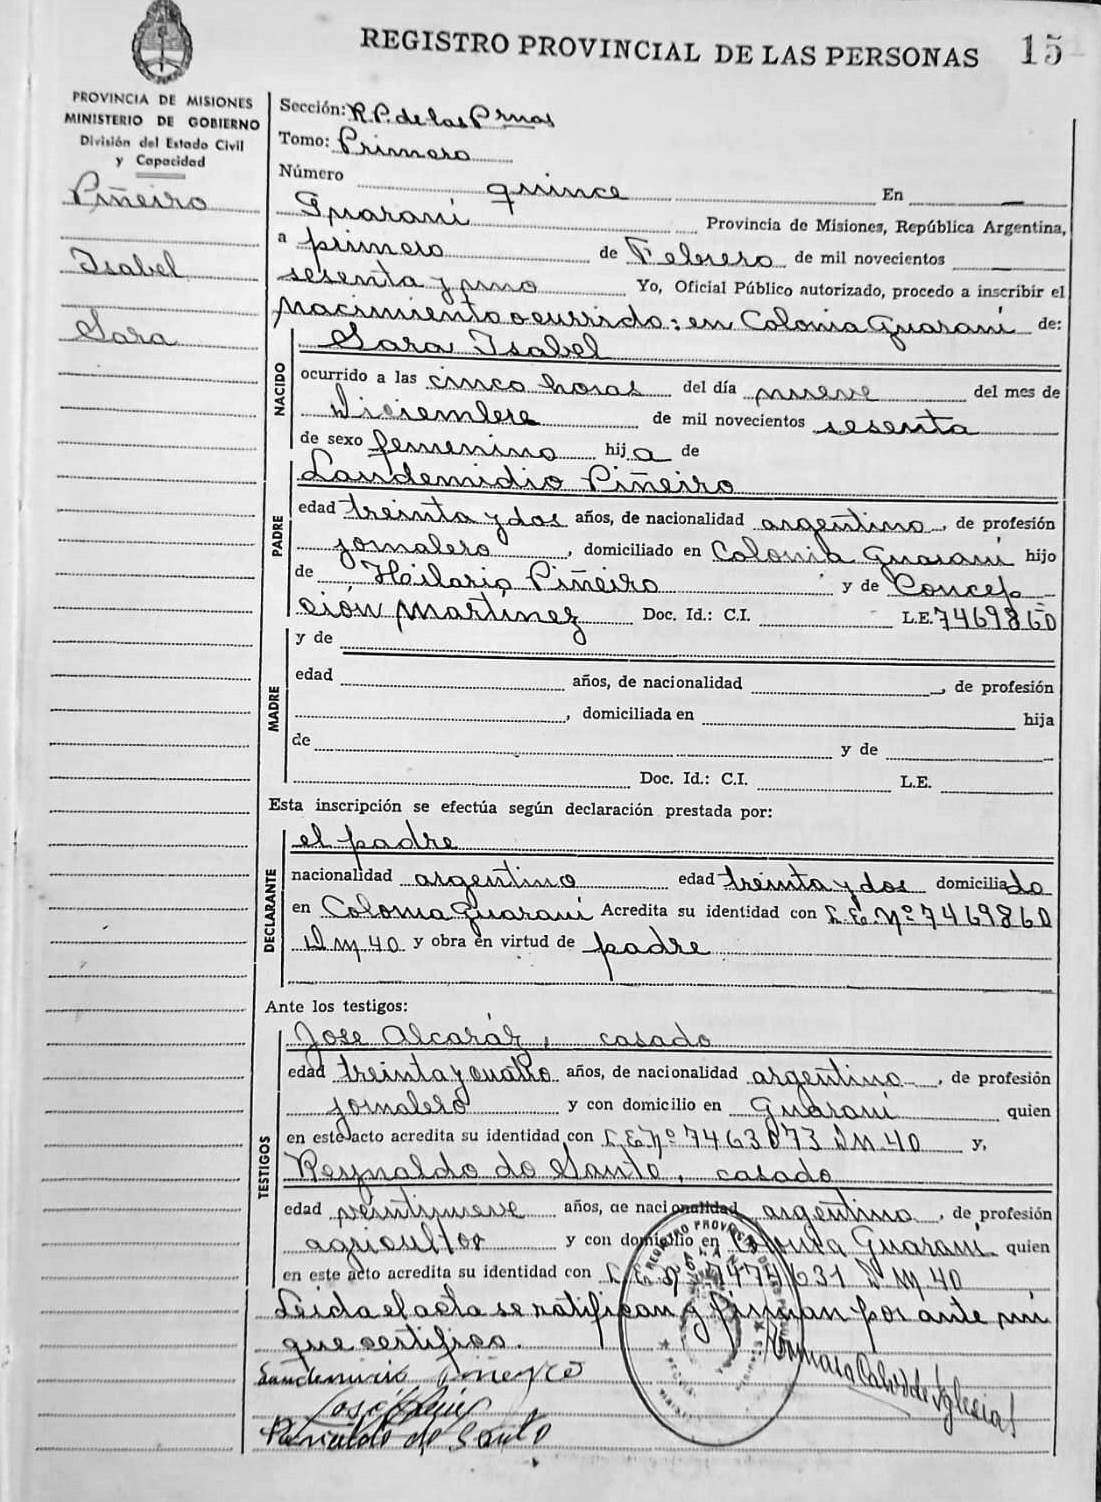 REGISTRO PROVINCIAL DE LAS PERSONAS 15
PROVINCIA DE MISIONES
MINISTERIO DE GOBIERNO
División del Estado Civil
y Capacidad
Piñeiro
Isabel
Sara
Sección: R.P. de las Prnas
Tomo: Primero
Número quince En
Guaraní Provincia de Misiones, República Argentina,
a primero de Febrero de mil novecientos
sesenta y uno Yo, Oficial Público autorizado, procedo a inscribir el
Nacimiento ocurrido: en Colonia Guaraní de:
NACIDO
Sara Isabel
ocurrido a las cinco horas del día nueve del mes de
Diciembre de mil novecientos sesenta
de sexo femenino hija de
PADRE
Laudemidio Piñeiro
edad treinta y dos años, de nacionalidad argentino, de profesión
jornalero, domiciliado en Colonia Guaraní hijo
de Hilario Piñeiro y de Concep
ción Martinez Doc. Id.: C.I. L.E. 7469860
MADRE
y de
edad años, de nacionalidad , de profesión
, domiciliada en hija
de y de
Doc. Id.: C.I. L.E.
Esta inscripción se efectúa según declaración prestada por:
DECLARANTE
el padre
nacionalidad argentino edad treinta y dos domiciliado
en Colonia Guaraní Acredita su identidad con L.E. Nº 7469860
D M 40 y obra en virtud de padre
Ante los testigos:
TESTIGOS
Jose Alcaráz, casado
edad treinta y cuatro años, de nacionalidad argentino, de profesión
jornalero y con domicilio en Guaraní quien
en este acto acredita su identidad con L.E. Nº 7463073 D M. 40 y,
Reynaldo do Santo, casado
edad veintinueve años, de nacionalidad argentino, de profesión
agricultor y con domicilio en Colonia Guaraní quien
en este acto acredita su identidad con L.E. Nº 7474631 D M. 40
Leida el acta se ratifican y firman por ante mi
que certifico.